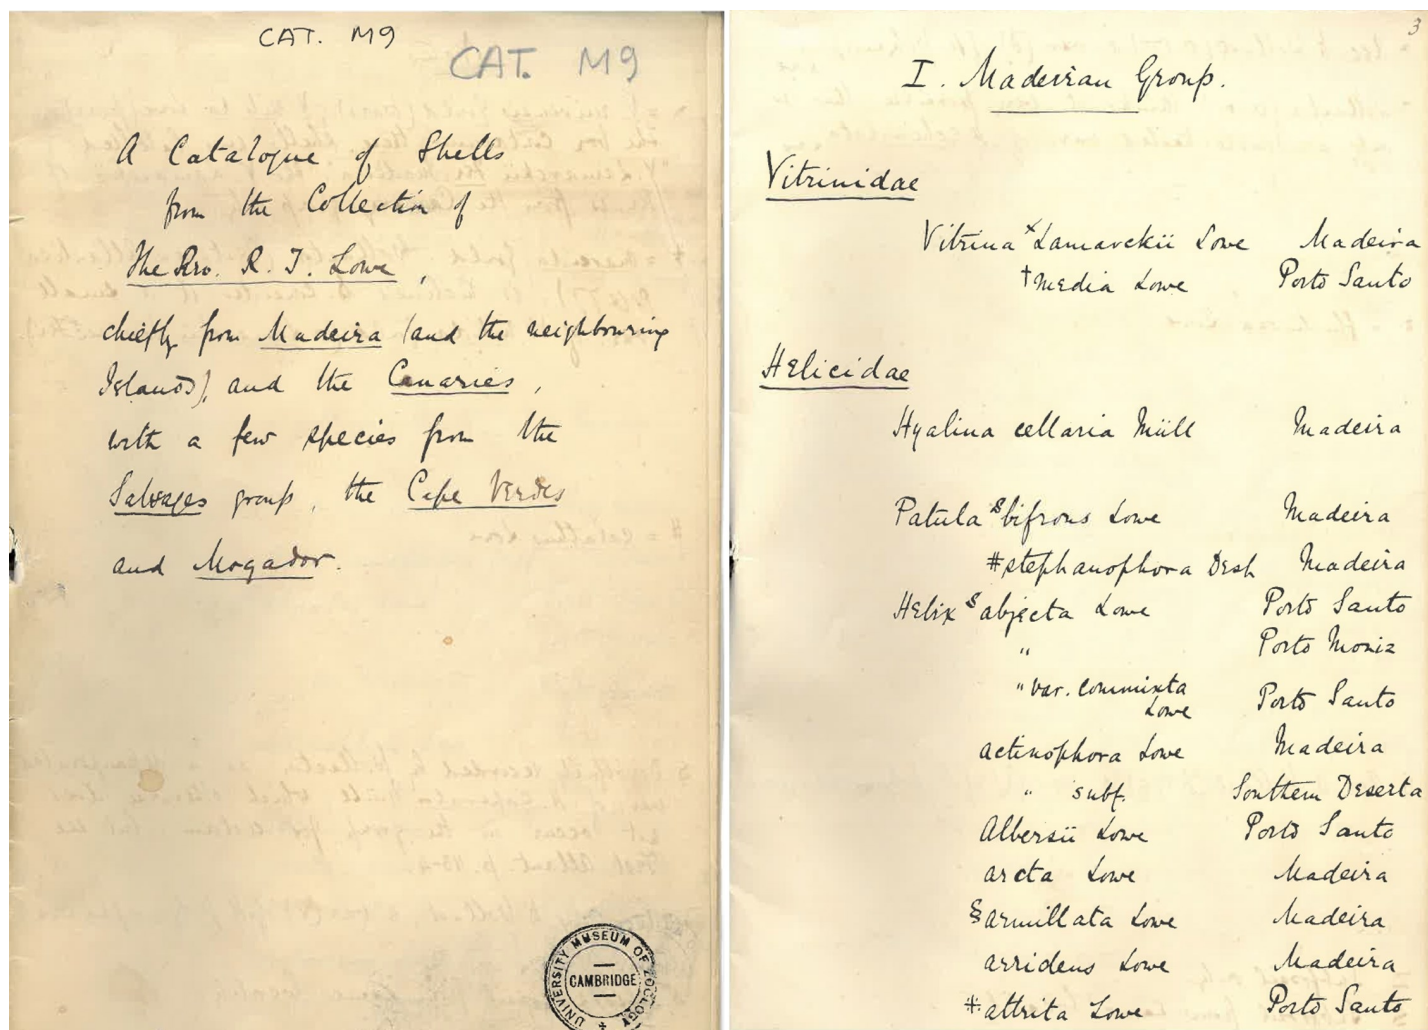 CAT. M9
CAT. M9
A Catalogue of Shells
from the Collection of
the Rev. R. T. Lowe,
chiefly from Madeira (and the neighbouring
Islands), and the Canaries,
with a few species from the
Salvages group, the Cape Verdes
and Mogador.
UNIVERSITY MUSEUM OF ZOOLOGY
CAMBRIDGE
3
I. Madeiran Group.
Vitrinidae
Vitrina ˣLamarckii Lowe Madeira
†media Lowe Porto Santo
Helicidae
Hyalina cellaria Müll Madeira
Patula §bifrons Lowe Madeira
#stephanophora Desh Madeira
Helix §abjecta Lowe Porto Santo
" Porto Moniz
" var. commixta Porto Santo
Lowe
actinophora Lowe Madeira
" subf. Southern Deserta
Albersii Lowe Porto Santo
arcta Lowe Madeira
§armillata Lowe Madeira
arridens Lowe Madeira
#attrita Lowe Porto Santo